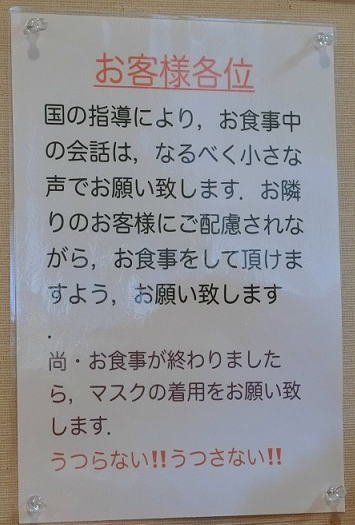 お客様各位
国の指導により，お食事中
の会話は，なるべく小さな
声でお願い致します．お隣
りのお客様にご配慮されな
がら，お食事をして頂けま
すよう，お願い致します
．
尚・お食事が終わりました
ら，マスクの着用をお願い致
します．
うつらない!!うつさない!!